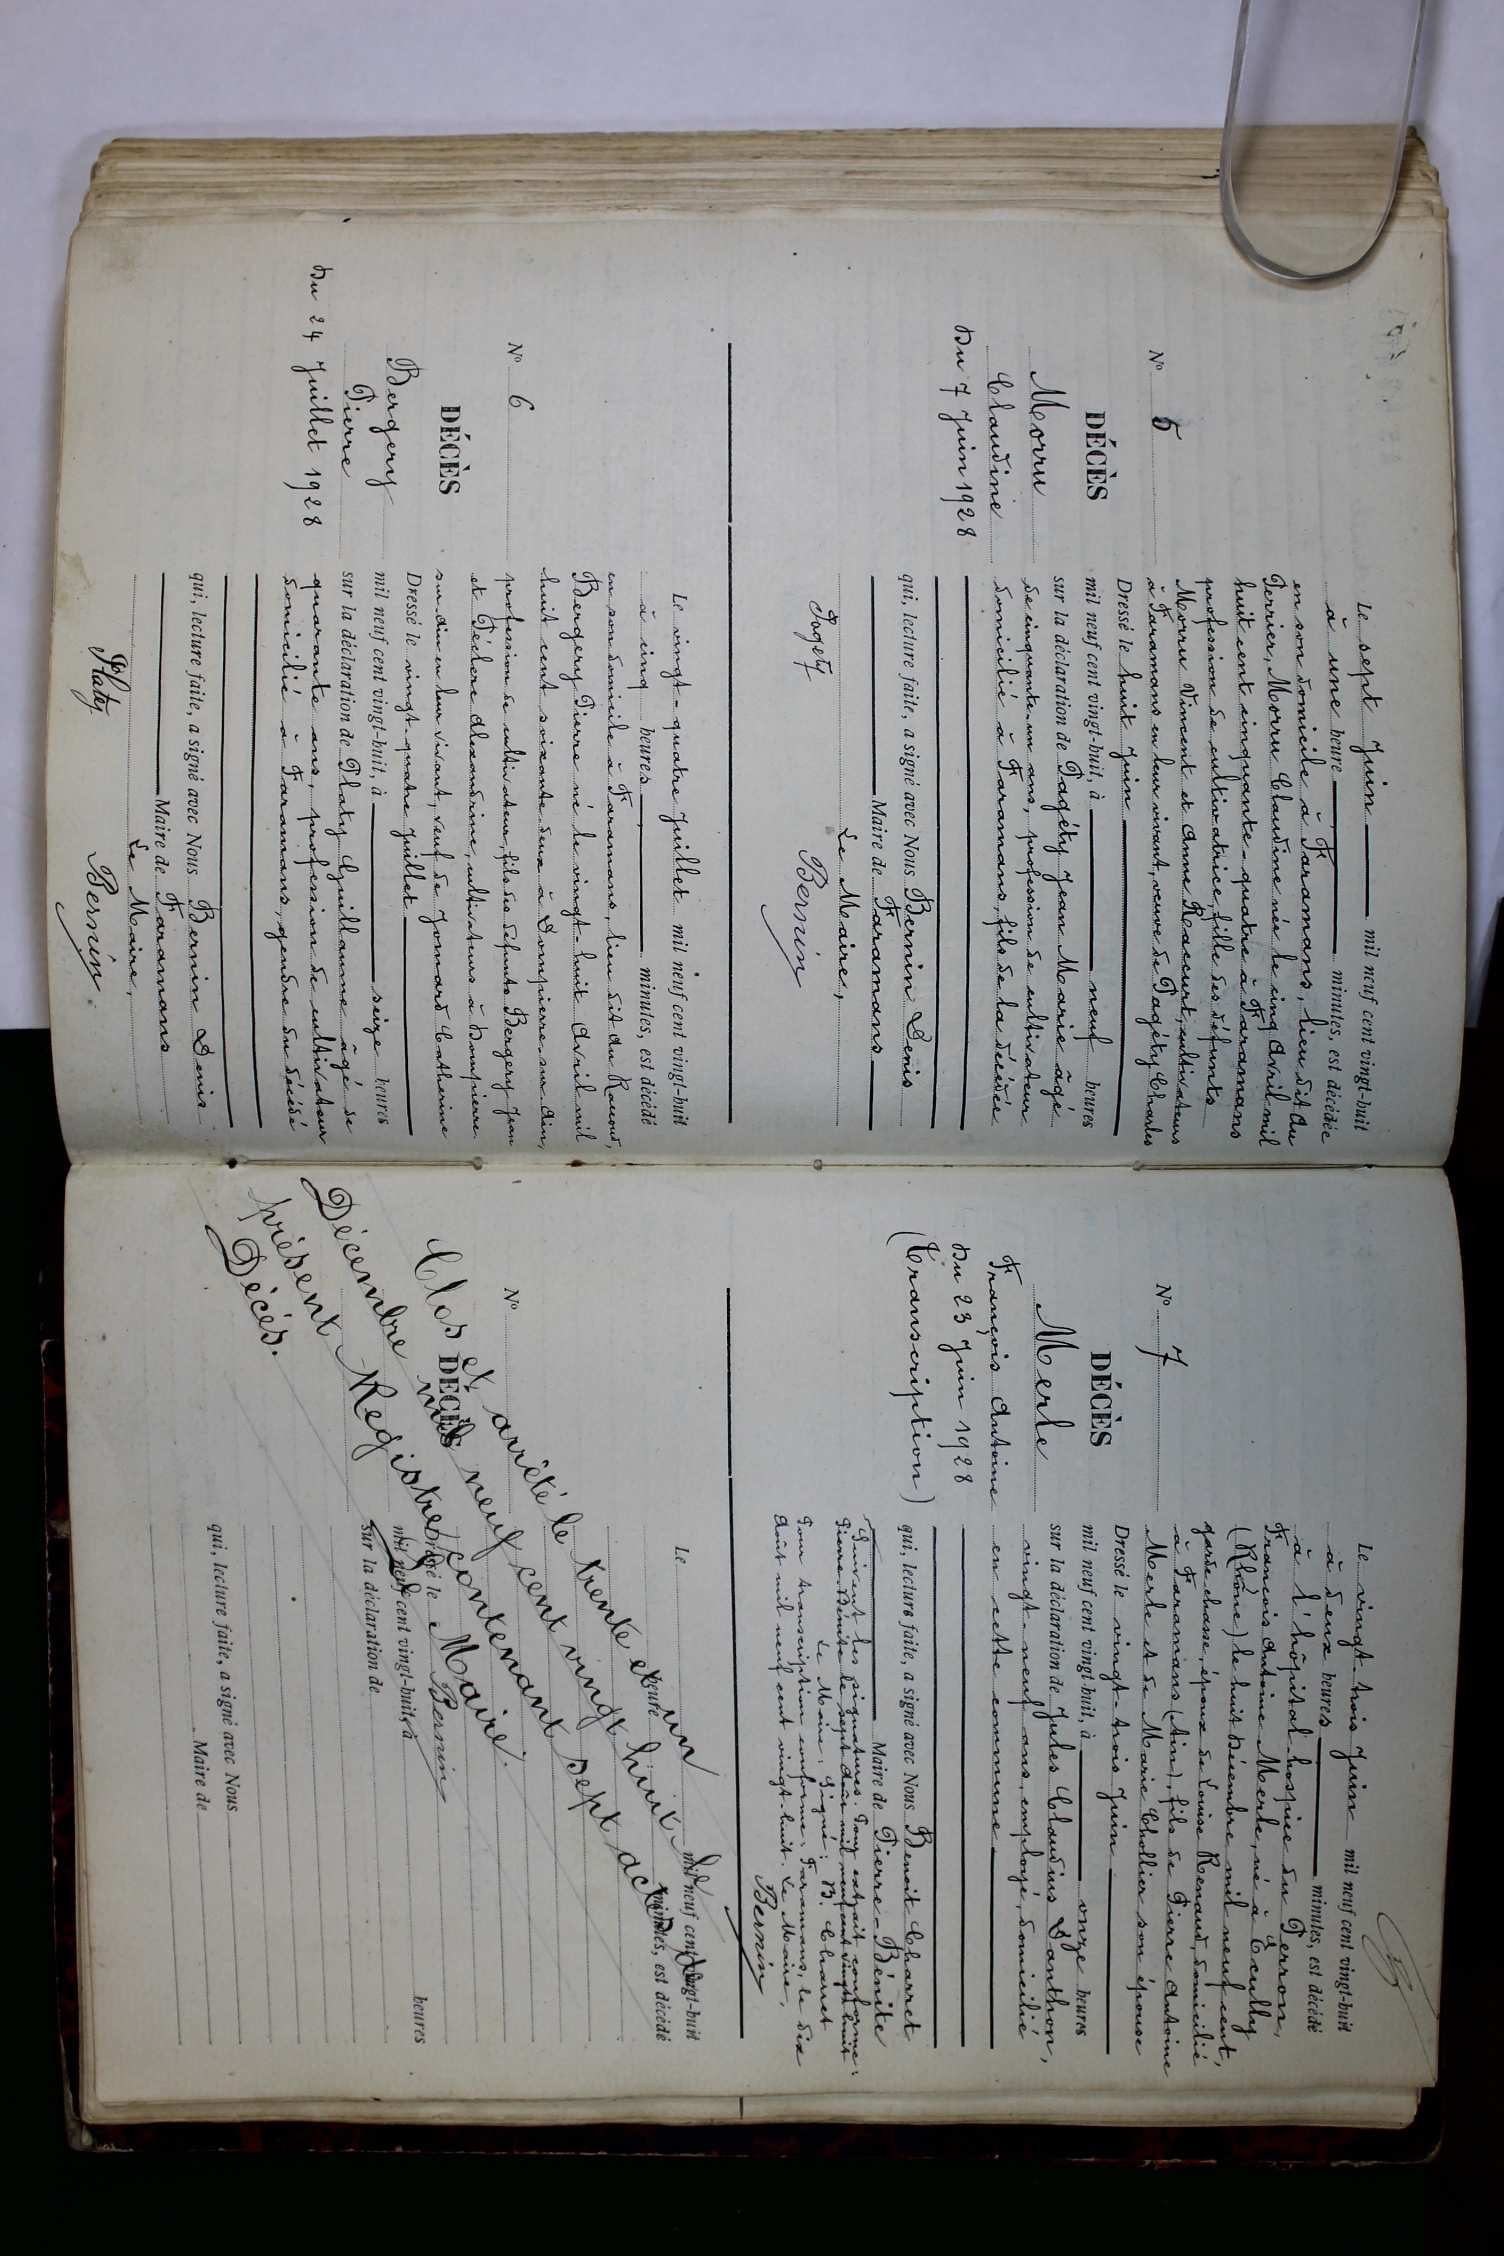 N° 5
DÉCÈS
Morru
Claudine
Du 7 Juin 1928
Le sept Juin mil neuf cent vingt-huit
à une heure minutes, est décédée
en son domicile à Faramans, lieu dit Au
Perrier, Morru Claudine née le cinq Avril mil
huit cent cinquante-quatre à Faramans
profession de cultivatrice, fille des défunts
Morru Vincent et Anne Raccurt, cultivateurs
à Faramans en leur vivant, veuve de Pagéty Charles
Dressé le huit Juin
mil neuf cent vingt-huit, à neuf heures
sur la déclaration de Pagéty Jean Marie âgé
de cinquante-un ans, profession de cultivateur
domicilié à Faramans, fils de la décédée
qui, lecture faite, a signé avec Nous Bernin Denis
Maire de Faramans
Le Maire,
Pagety Bernin
N° 6
DÉCÈS
Bergery
Pierre
Du 24 Juillet 1928
Le vingt-quatre Juillet mil neuf cent vingt-huit
à cinq heures minutes, est décédé
en son domicile à Faramans, lieu dit Au
Bergery Pierre né le vingt-huit Avril mil
huit cent soixante deux à Dompierre-sur-Ain,
profession de cultivateur, fils des défunts Bergery Jean
et Péchere Alexandrine, cultivateurs à Dompierre
sur-Ain en leur vivant, veuf de Jomard Catherine
Dressé le vingt-quatre Juillet
mil neuf cent vingt-huit, à seize heures
sur la déclaration de Platy Guillaume âgé de
quarante ans, profession de cultivateur
domicilié à Faramans, gendre du décédé
qui, lecture faite, a signé avec Nous Bernin Denis
Maire de Faramans
Le Maire,
Platy Bernin
N° 7
DÉCÈS
Merle
François Antoine
Du 23 Juin 1928
(Transcription)
Le vingt-trois Juin mil neuf cent vingt-huit
à deux heures minutes, est décédé
à l'hôpital-hospice du Perron,
François Antoine Merle, né à Ecully
(Rhône) le huit Décembre mil neuf cent,
garde chasse, époux de Louise Renaud, domicilié
à Faramans (Ain), fils de Pierre Antoine
Merle et de Marie Chollier son épouse
Dressé le vingt-trois Juin
mil neuf cent vingt-huit, à onze heures
sur la déclaration de Jules Claudius Danthon,
vingt-neuf ans, employé, domicilié
en cette commune
qui, lecture faite, a signé avec Nous Benoit Charret
Maire de Pierre-Bénite
Suivent les signatures. Pour extrait conforme:
Pierre-Bénite le sept Août mil neuf cent vingt-huit
Le Maire, Signé: B. Charret
Pour transcription conforme: Faramans, le dix
Août mil neuf cent vingt-huit. Le Maire,
Bernin
N°
DÉCÈS
Le mil neuf cent vingt-huit
heure minutes, est décédé
Dressé le
mil neuf cent vingt-huit, à heures
sur la déclaration de
qui, lecture faite, a signé avec Nous
Maire de
Clos et arrêté le trente et un
Décembre mil neuf cent vingt huit le
présent Registre contenant sept actes de
Décès.
Le Maire.
Bernin